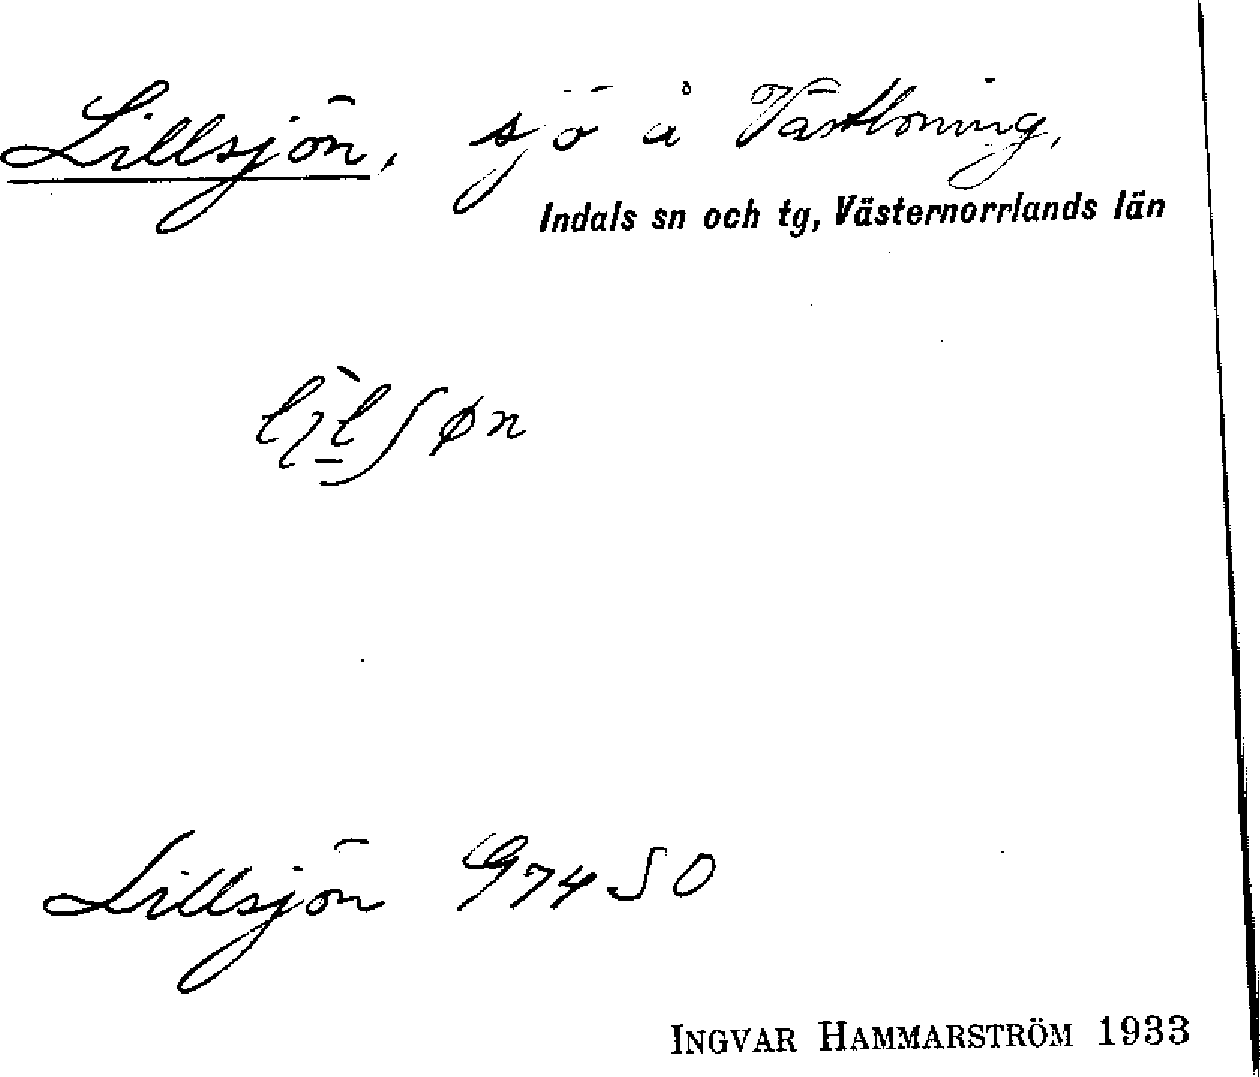 Lillsjön, sjö å Västloning,
Indals sn och tg, Västernorrlands län
Lillsjön G74SO
INGVAR HAMMARSTRÖM 1933